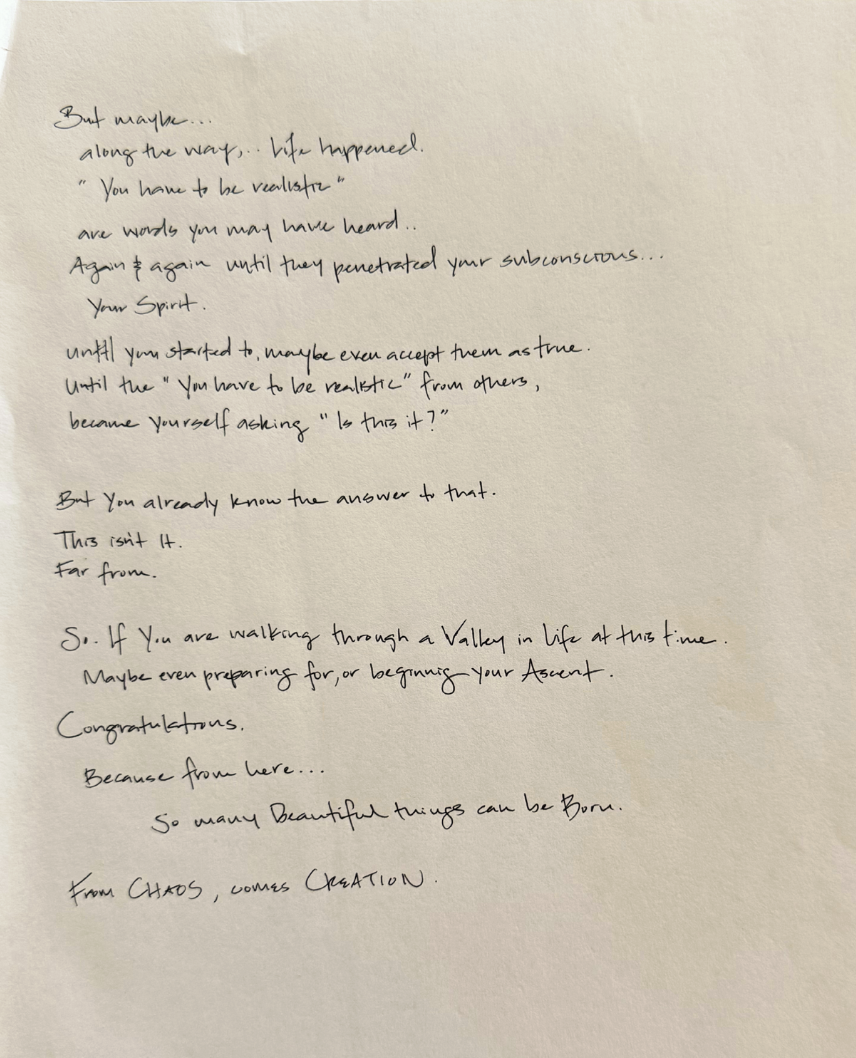 But maybe...
along the way,.. Life happened.
"You have to be realistic"
are words you may have heard..
Again & again until they penetrated your subconscious...
Your Spirit.
until you started to, maybe even accept them as true.
Until the "You have to be realistic" from others,
became yourself asking "Is this it?"
But You already know the answer to that.
This isn't It.
Far from.
So. If You are walking through a Valley in Life at this time.
Maybe even preparing for, or beginnig your Ascent.
Congratulations.
Because from here...
So many Beautiful things can be Born.
From CHAOS, comes CREATION.